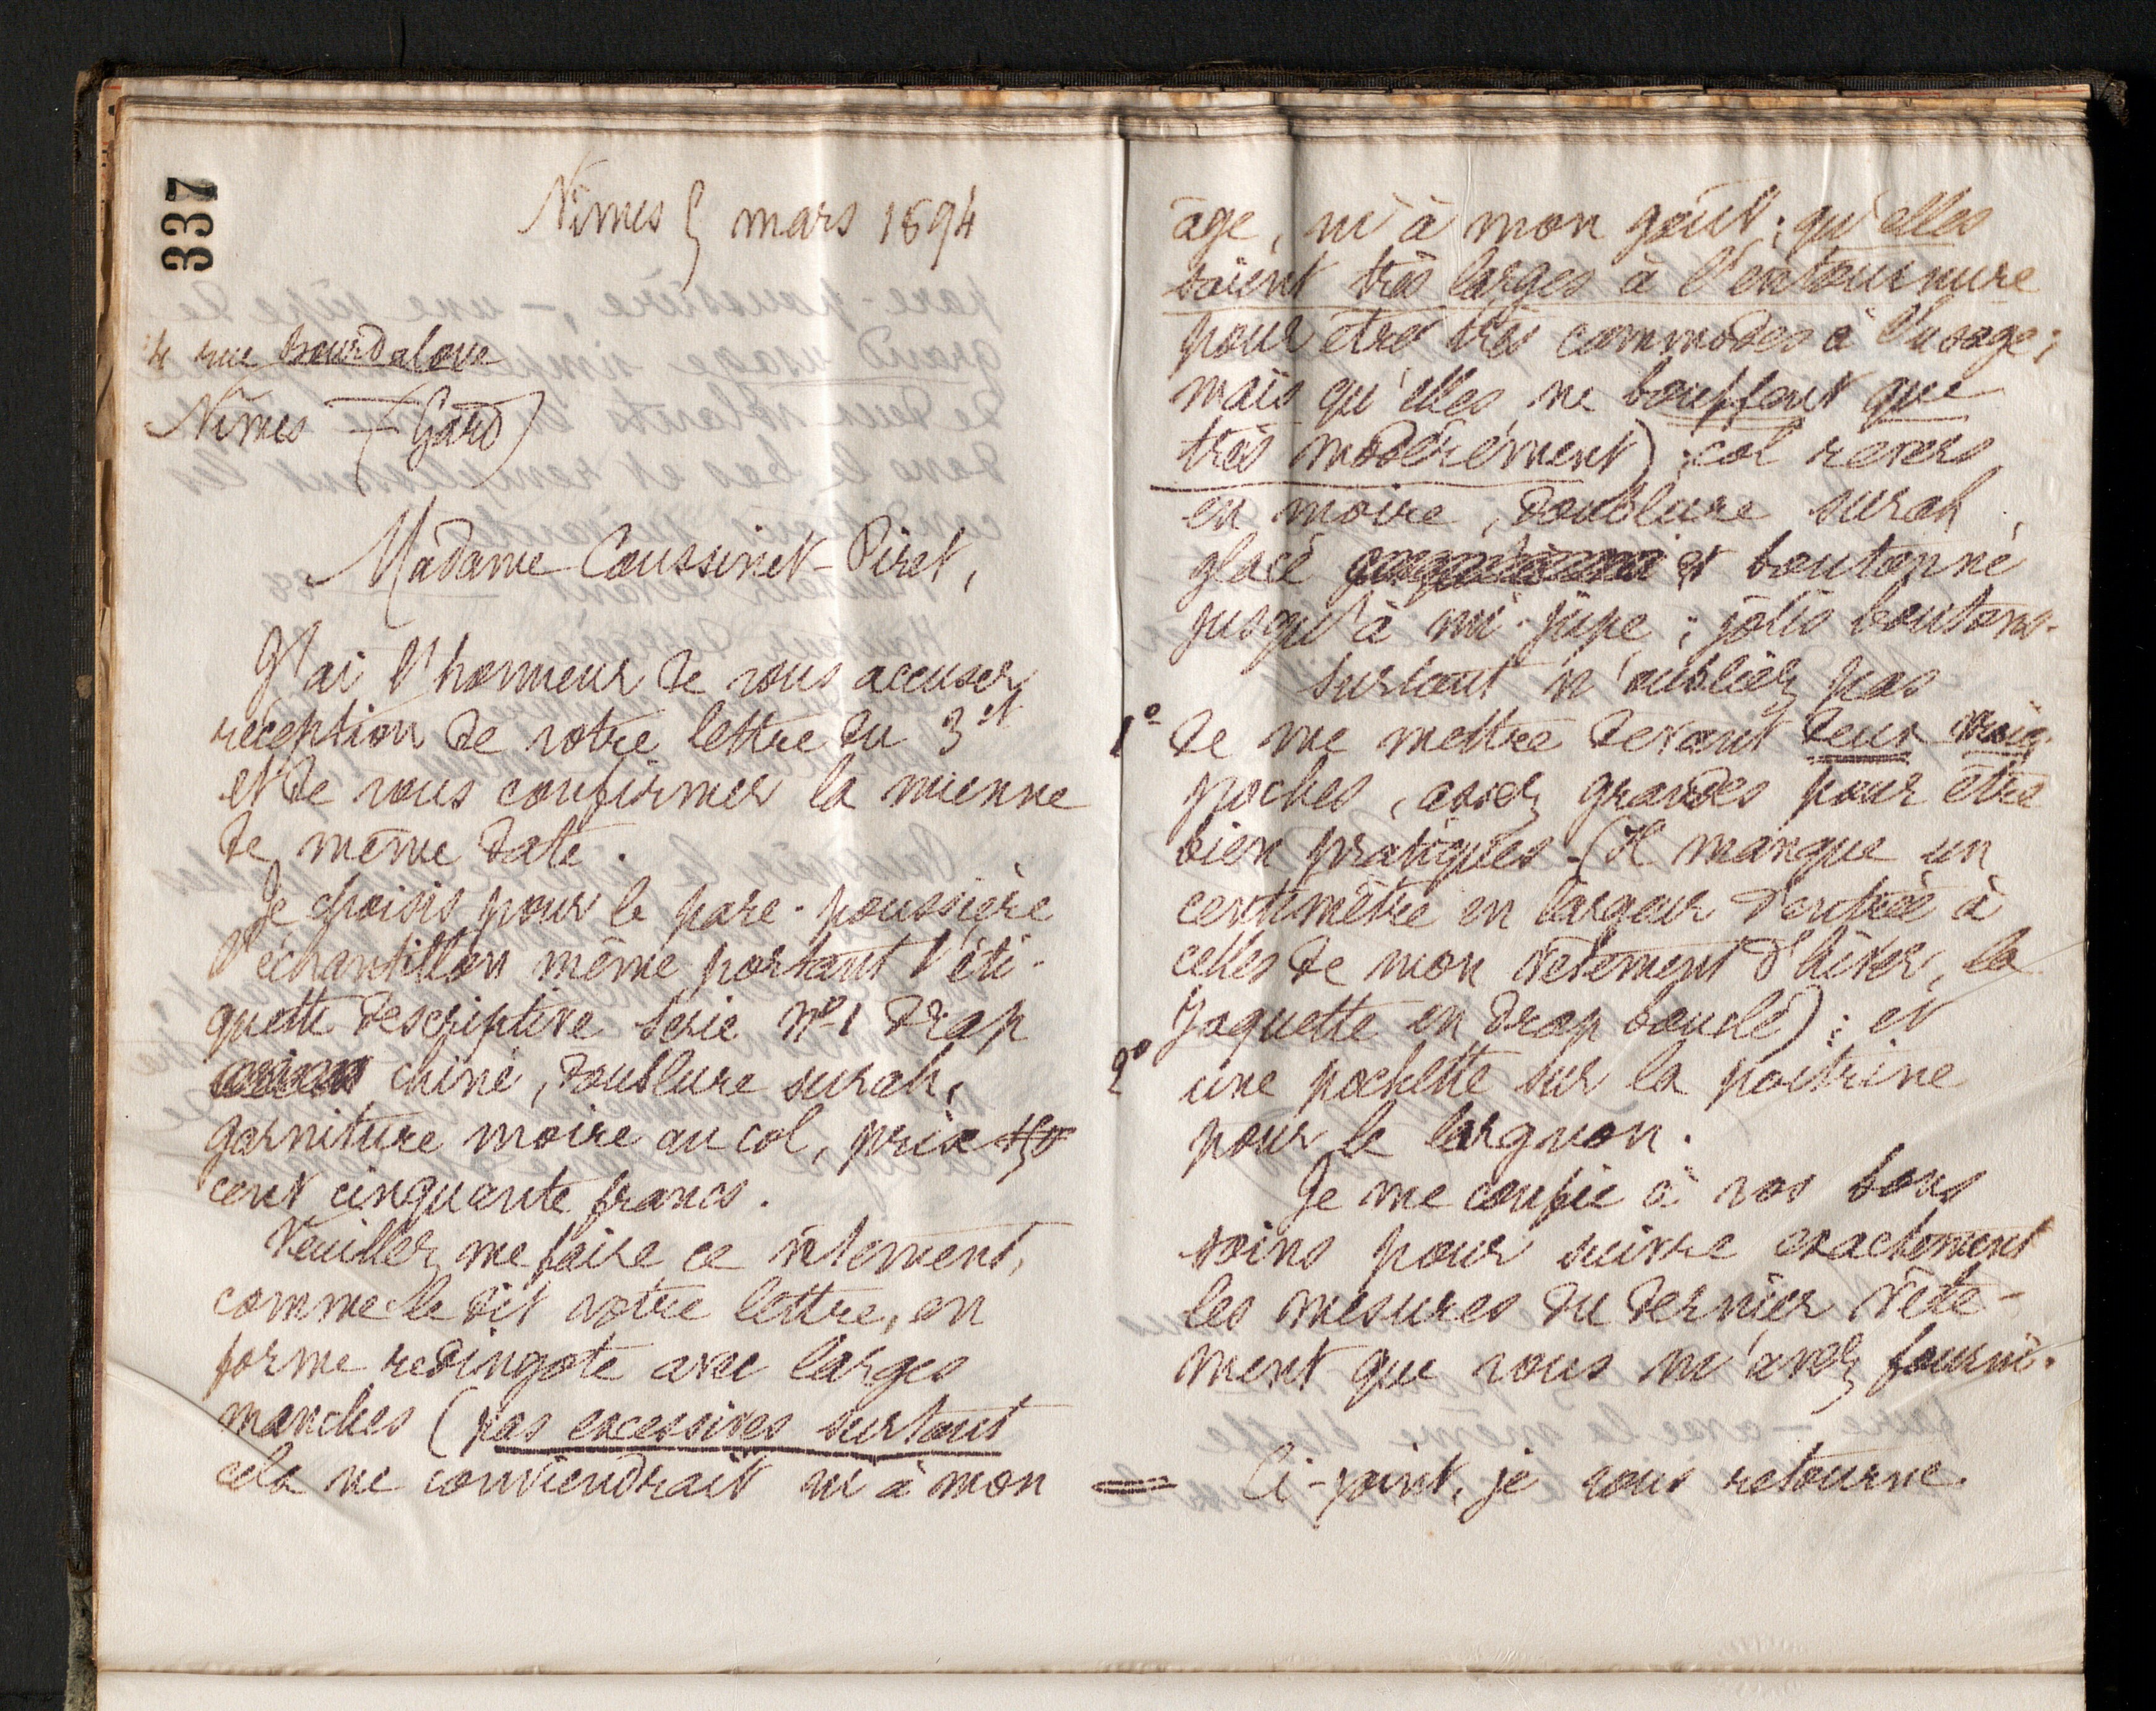 337
Nimes 5 mars 1894
4 rue Bourdaloue
Nîmes (Gard)
Madame Coussinet-Piret,
J'ai l'honneur de vous accuser
réception de votre lettre du 3 ct
et de vous confirmer la mienne
de même date.
Je choisis pour le pare-poussière
l'échantillon même portant l'éti-
quette descriptive Serie No 1 drap
chiné, doublure surah,
garniture moire au col, prix 150
cent cinquante francs.
Veuillez me faire ce vêtement,
comme le dit votre lettre, en
forme redingote avec larges
manches (pas excessives surtout
cela ne conviendrait ni à mon
âge, ni à mon goût; qu'elles
soient très larges à l'entournure
pour être très commodes à l'usage;
mais qu'elles ne bouffent que
très modérément); col revers
en moire, doublure surah
glacé et boutonné
jusqu'à mi-jupe; jolis boutons.
Surtout n'oubliez pas
1º de me mettre devant deux vraies
poches, assez grandes pour être
bien pratiques. (Il manque un
centimètre en largeur d'entrée à
celles de mon vêtement d'hiver, la
Jaquette en drap bouclé); et
2º une pochette sur la poitrine
pour le lorgnon.
Je me confie à vos bons
soins pour suivre exactement
les mesures du dernier vête-
ment que vous m'avez fourni.
= Ci-joint, je vous retourne